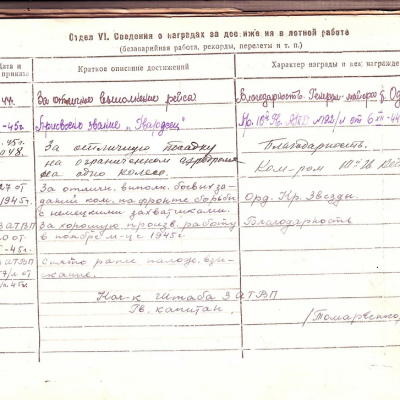 Отдел VI. Сведения о наградах за достижения в летной работе
(безаварийная работа, рекорды, перелеты и т. п.)
Дата и
приказа
Краткое описание достижений
Характер награды и кем награжде
За отличное выполнение рейса
Благодарность. Генерал-майора
-45г.
Присвоено звание "Гвардеец"
Пр. 10 № 192/л от 6 III-44
45г.
048.
За отличную посадку
на ограниченном аэродроме
на одно колесо.
Благодарность.
Ком-ром 10
27 от
1945г.
За отличн. выполн. боевых за-
даний ком. на фронте борьбы
с немецкими захватчиками.
Орд. Кр. Звезды
АТВП
0 от
-45г.
За хорошую произв. работу
в ноябре м-це 1945г
Благодарность
АТВП
7/л от
45г.
Снято ранее налож. взы-
скание.
Нач-к Штаба 3 АТВП
Гв. капитан,